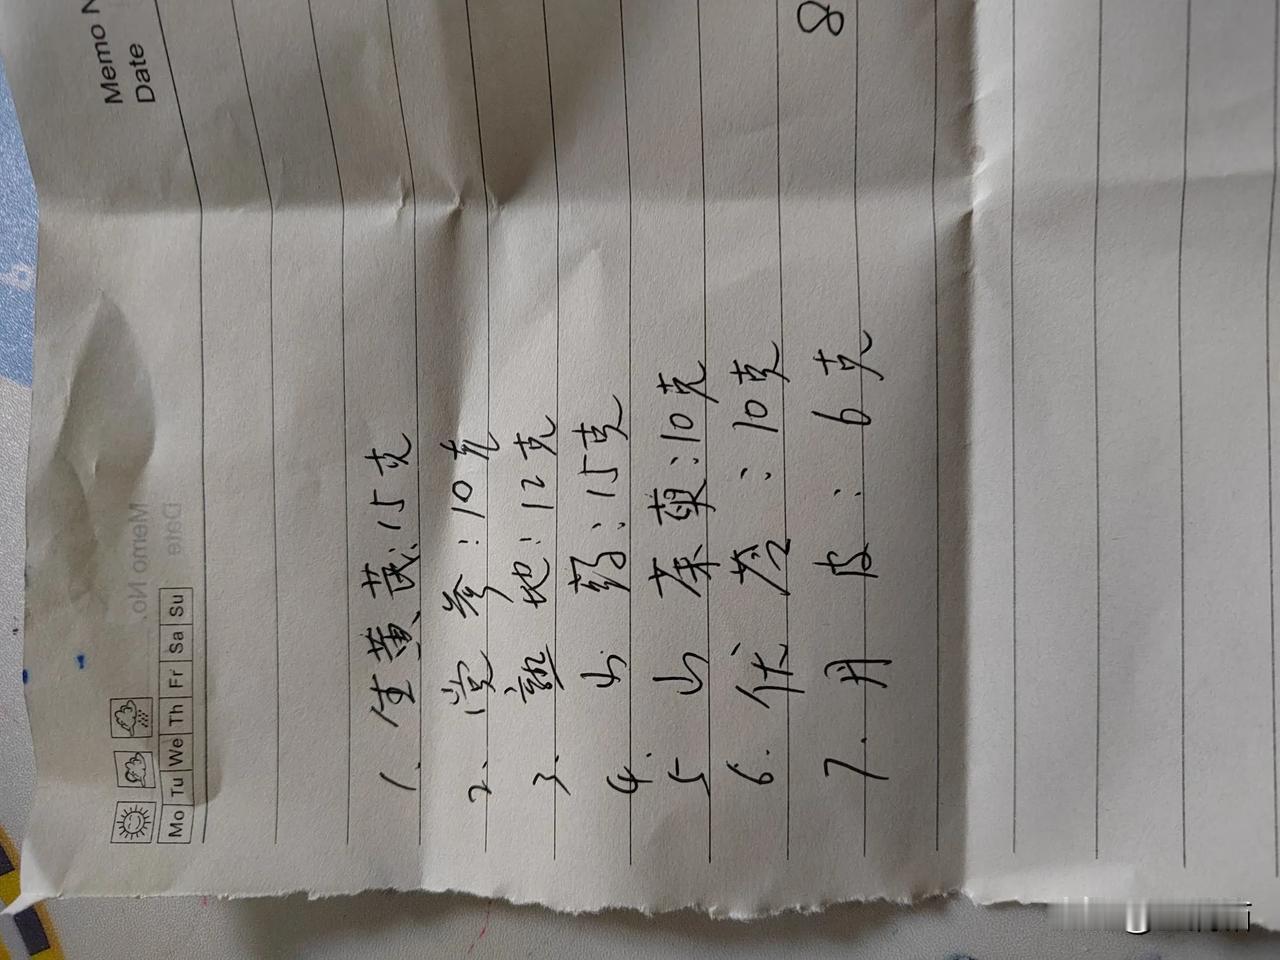 Memo N
Date
Mo Tu We Th Fr Sa Su
Memo No.
Date
1. 生黄芪:15克
2. 党参:10克
3. 熟地:12克
4. 山药:15克
5 山茱萸:10克
6. 伏苓:10克
7. 丹皮:6克
8
6